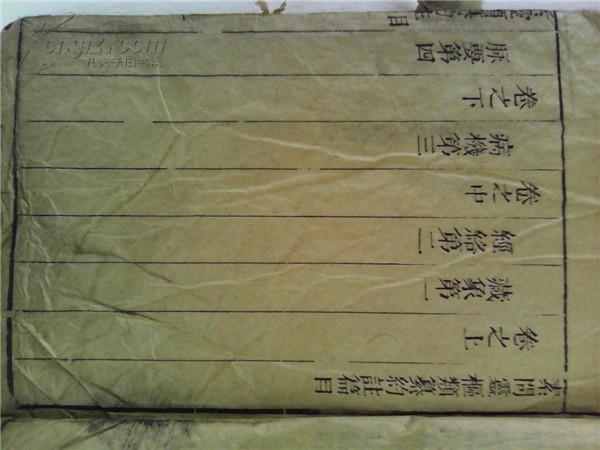 素問靈樞類纂約註篇目
卷之上
藏象第一
經絡第二
卷之中
病機第三
卷之下
脉要第四
孔夫子旧书网